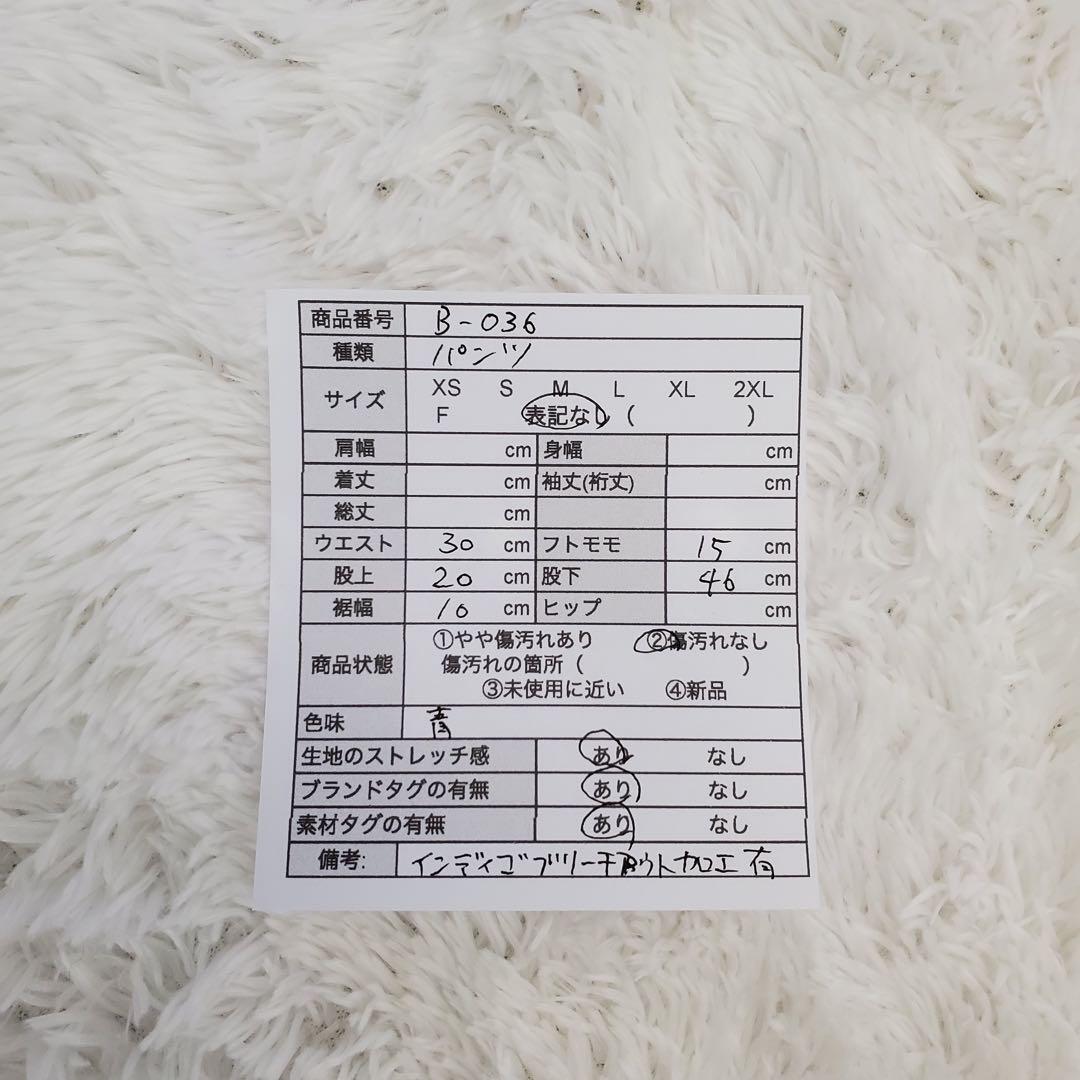 商品番号 B-036
種類 パンツ
サイズ XS S M L XL 2XL
F 表記なし ( )
肩幅 cm 身幅 cm
着丈 cm 袖丈(裄丈) cm
総丈 cm
ウエスト 30 cm フトモモ 15 cm
股上 20 cm 股下 46 cm
裾幅 10 cm ヒップ cm
①やや傷汚れあり ②傷汚れなし
商品状態 傷汚れの箇所 ( )
③未使用に近い ④新品
色味 青
生地のストレッチ感 あり なし
ブランドタグの有無 あり なし
素材タグの有無 あり なし
備考: インディゴブリーチアウト加工有